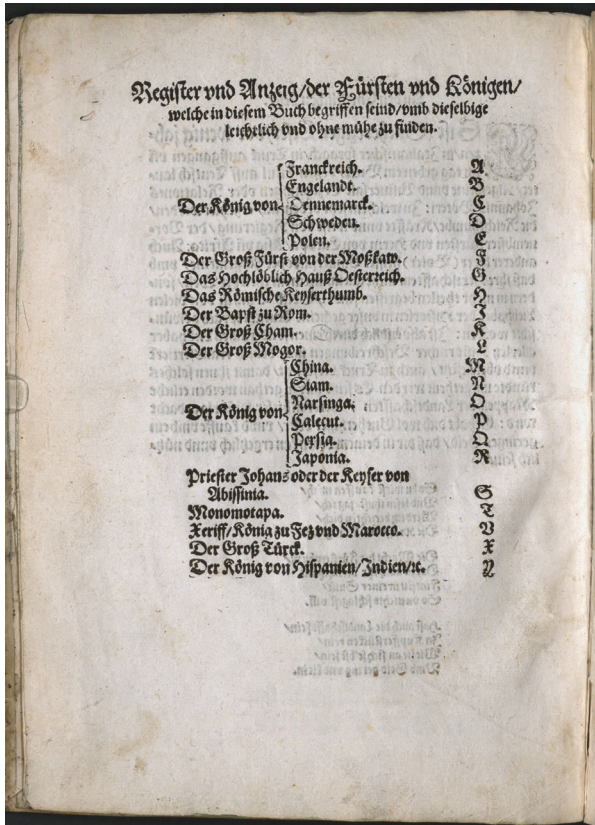 Register vnd Anzeig/der Fürsten vnd Königen/
welche in diesem Buch begriffen seind/vmb dieselbige
leichtlich vnd ohne mühe zu finden.
Franckreich. A
Engelandt. B
Der König von Dennemarck. C
Schweden. D
Polen. E
Der Groß Fürst von der Moßkaw. F
Das Hochlöblich Hauß Oesterreich. G
Das Römische Keyserthumb. H
Der Bapst zu Rom. I
Der Groß Cham. K
Der Groß Mogor. L
China. M
Siam. N
Narsinga. O
Der König von Calecut. P
Persia. Q
Japonia. R
Priester Johans oder der Keyser von
Abissinia. S
Monomotapa. T
Xeriff/König zu Fez vnd Marocco. V
Der Groß Türck. X
Der König von Hispanien/Indien/ꝛc. Y